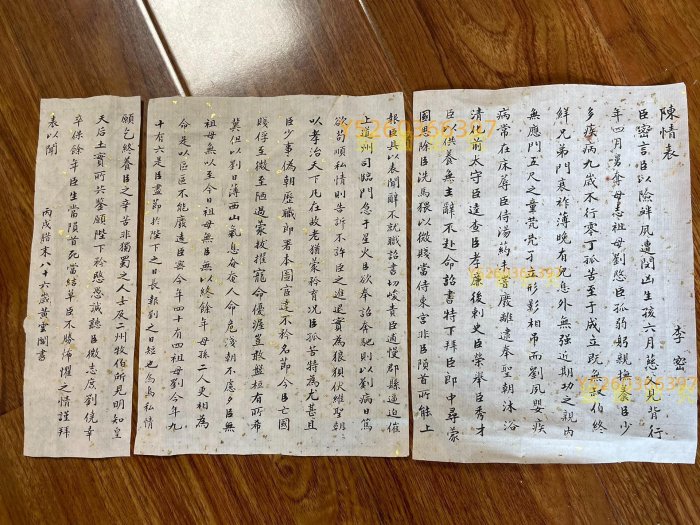 陳情表
李密
臣密言臣以險衅夙遭閔凶生孩六月慈父見背行
年四月舅奪母志祖母劉愍臣孤弱躬親撫養臣少
多疾病九歲不行零丁孤苦至于成立既無叔伯終
鮮兄弟門衰祚薄晚有兒息外無強近期功之親內
無應門五尺之童煢煢孑立形影相吊而劉夙嬰疾
病常在床蓐臣侍湯藥未曾廢離逮奉聖朝沐浴
清化前太守臣逵查臣孝廉後刺史臣榮舉臣秀才
臣供養無主辭不赴命詔書特下拜臣郎中尋蒙
國恩除臣洗馬猥以微賤當侍東宮非臣隕首所能上
報臣具以表聞辭不就職詔書切峻責臣逋慢郡縣逼迫催
上道州司臨門急于星火臣欲奉詔奔馳則以劉病日篤
欲苟順私情則告訴不許臣之進退實為狼狽伏維聖朝
以孝治天下凡在故老猶蒙矜育況臣孤苦特為尤甚且
臣少事偽朝歷職郎署本圖宦達不矜名節今臣亡國
賤俘至微至陋過蒙拔擢寵命優渥豈敢盤桓有所希
冀但以劉日薄西山氣息奄奄人命危淺朝不慮夕臣無
祖母無以至今日祖母無臣無以終餘年母孫二人更相為
命是以區區不能廢遠臣密今年四十有四祖母劉今年九
十有六是臣盡節於陛下之日長報劉之日短也烏鳥私情
願乞終養臣之辛苦非獨蜀之人士及二州牧伯所見明知皇
天后土實所共鑒願陛下矜愍愚誠聽臣微志庶劉僥幸
卒保餘年臣生當隕首死當結草臣不勝怖懼之情謹拜
表以聞
丙戌腊末八十六歲黃雲閣書
15260356397
15260356397